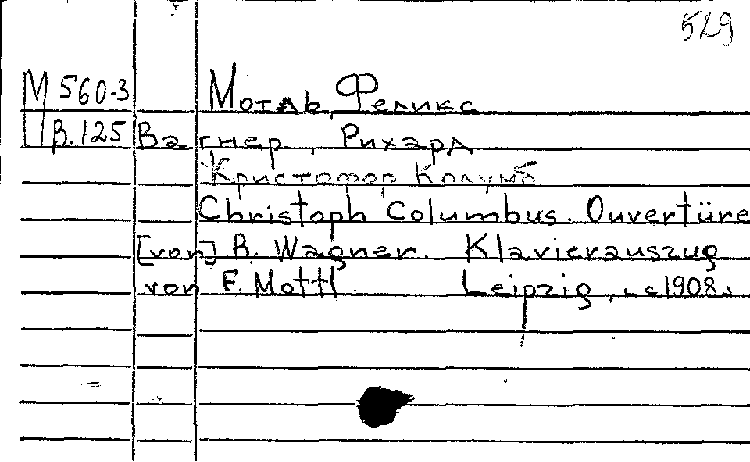 529
М 560-3 Мотль, Феликс
В.125 Вагнер, Рихард
Кристофор Колумб
Christoph Columbus. Ouvertüre
[von] R. Wagner. Klavierauszug
von F. Mottl Leipzig, c 1908.